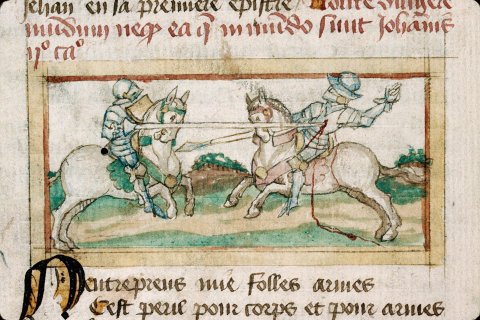 Jehan en sa premiere epistre Nolite diligere
mundum neque ea que in mundo sunt Johannis
ijo cao
Nentreprens mie folles armes
Cest peril pour corps et pour armes